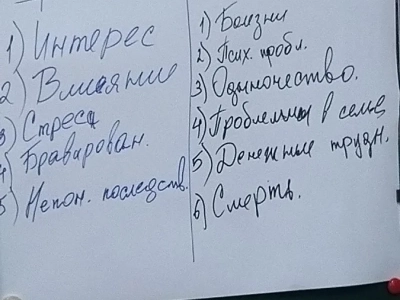 1) Интерес
2) Влияние
3) Стресс
4) Бравирован.
5) Непон. последств.
1) Болезни
2) Псих. пробл.
3) Одиночество.
4) Проблемы в семье
5) Денежные трудн.
6) Смерть.